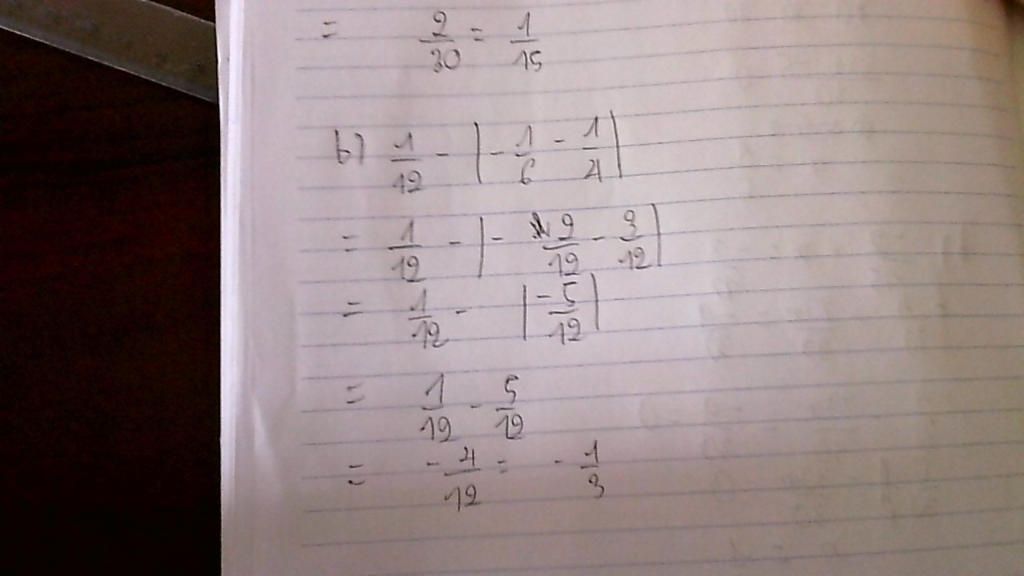 = 2/30 = 1/15
b) 1/12 - |-1/6 - 1/4|
= 1/12 - |- 2/12 - 3/12|
= 1/12 - |-5/12|
= 1/12 - 5/12
= -4/12 = -1/3